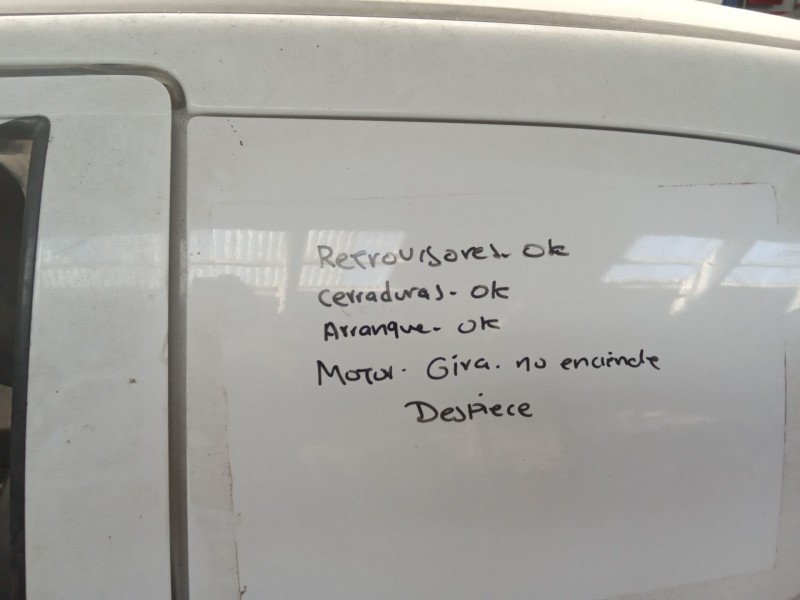 Retrovisores- Ok
Cerraduras- Ok
Arranque- Ok
Motor- Gira. no enciende
Despiece